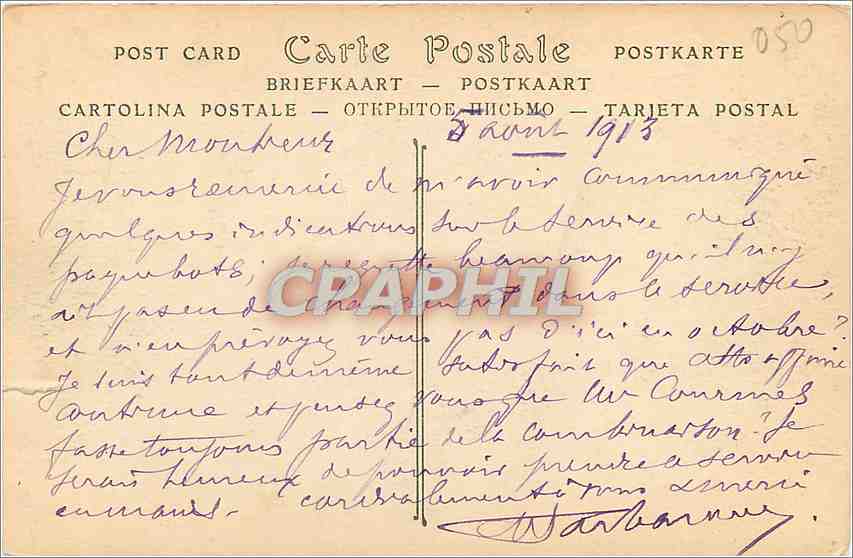 050
POST CARD Carte Postale POSTKARTE
BRIEFKAART — POSTKAART
CARTOLINA POSTALE — ОТКРЫТОЕ ПИСЬМО — TARJETA POSTAL
5 août 1913
Cher Monsieur
Je vous remercie de m'avoir communiqué
quelques indications sur le service des
paquebots; je regrette beaucoup qu'il n'y
ait pas eu de changement dans le service,
et n'en prévoyez vous pas d'ici en octobre?
Je suis tout de même satisfait que cette affaire
continue et pensez vous que Mr Courmes
fasse toujours partie de la combinaison? Je
serais heureux de pouvoir prendre ce service
en mains. Cordialement à vous & merci
CPARPHIL